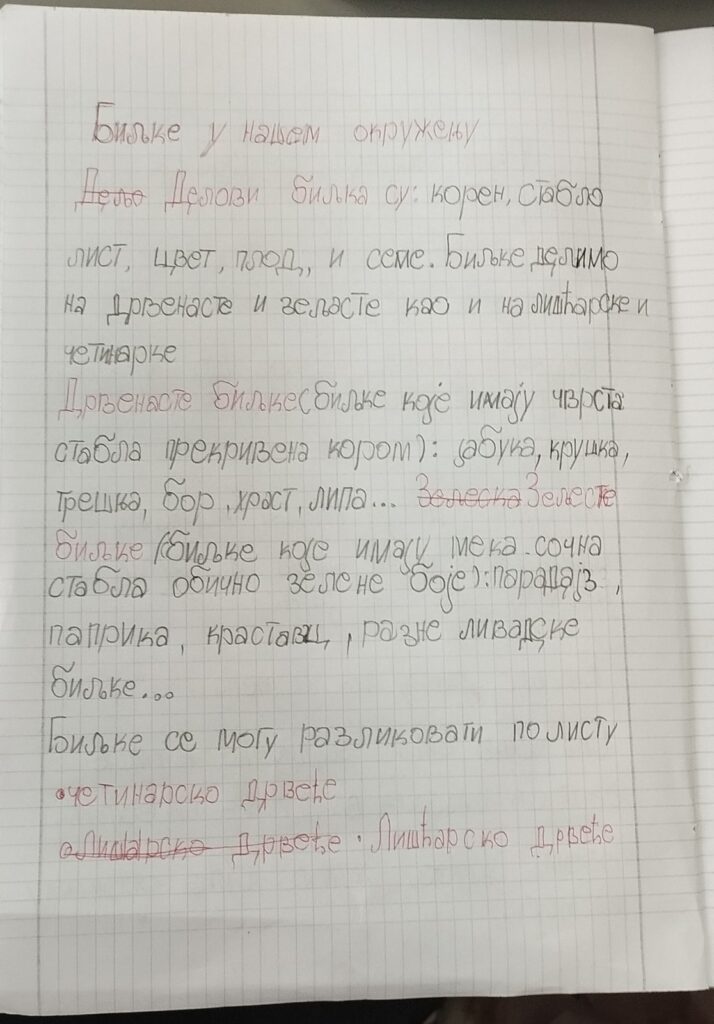 Биљке у нашем окружењу
Дељо Делови биљка су: корен, стабло
лист, цвет, плод, и семе. Биљке делимо
на дрвенасте и зељасте као и на лишћарске и
четинарке
Дрвенасте биљке (биљке које имају чврста
стабла прекривена кором): јабука, крушка,
трешња, бор, храст, липа... Зелеска Зелесте
биљке (биљке које имају мека. сочна
стабла обично зелене боје): парадајз,
паприка, краставац, разне ливадске
биљке...
Биљке се могу разликовати по листу
•четинарско дрвеће
•Лишарско дрвеће • Лишћарско дрвеће